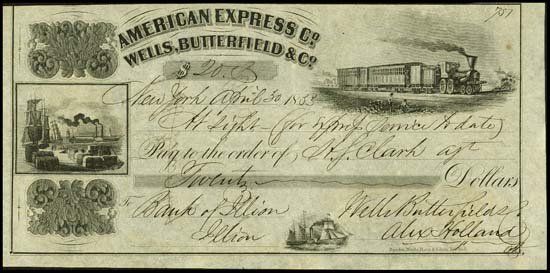 757
AMERICAN EXPRESS Co.
WELLS, BUTTERFIELD & Co.
$20.
New York April 30 1853
At Sight - (for Expss Service to date)
Pay to the order of H.J. Clark agt
Twenty Dollars
To Bank of Ilion
Ilion
Wells Butterfield & Co
Alex Holland